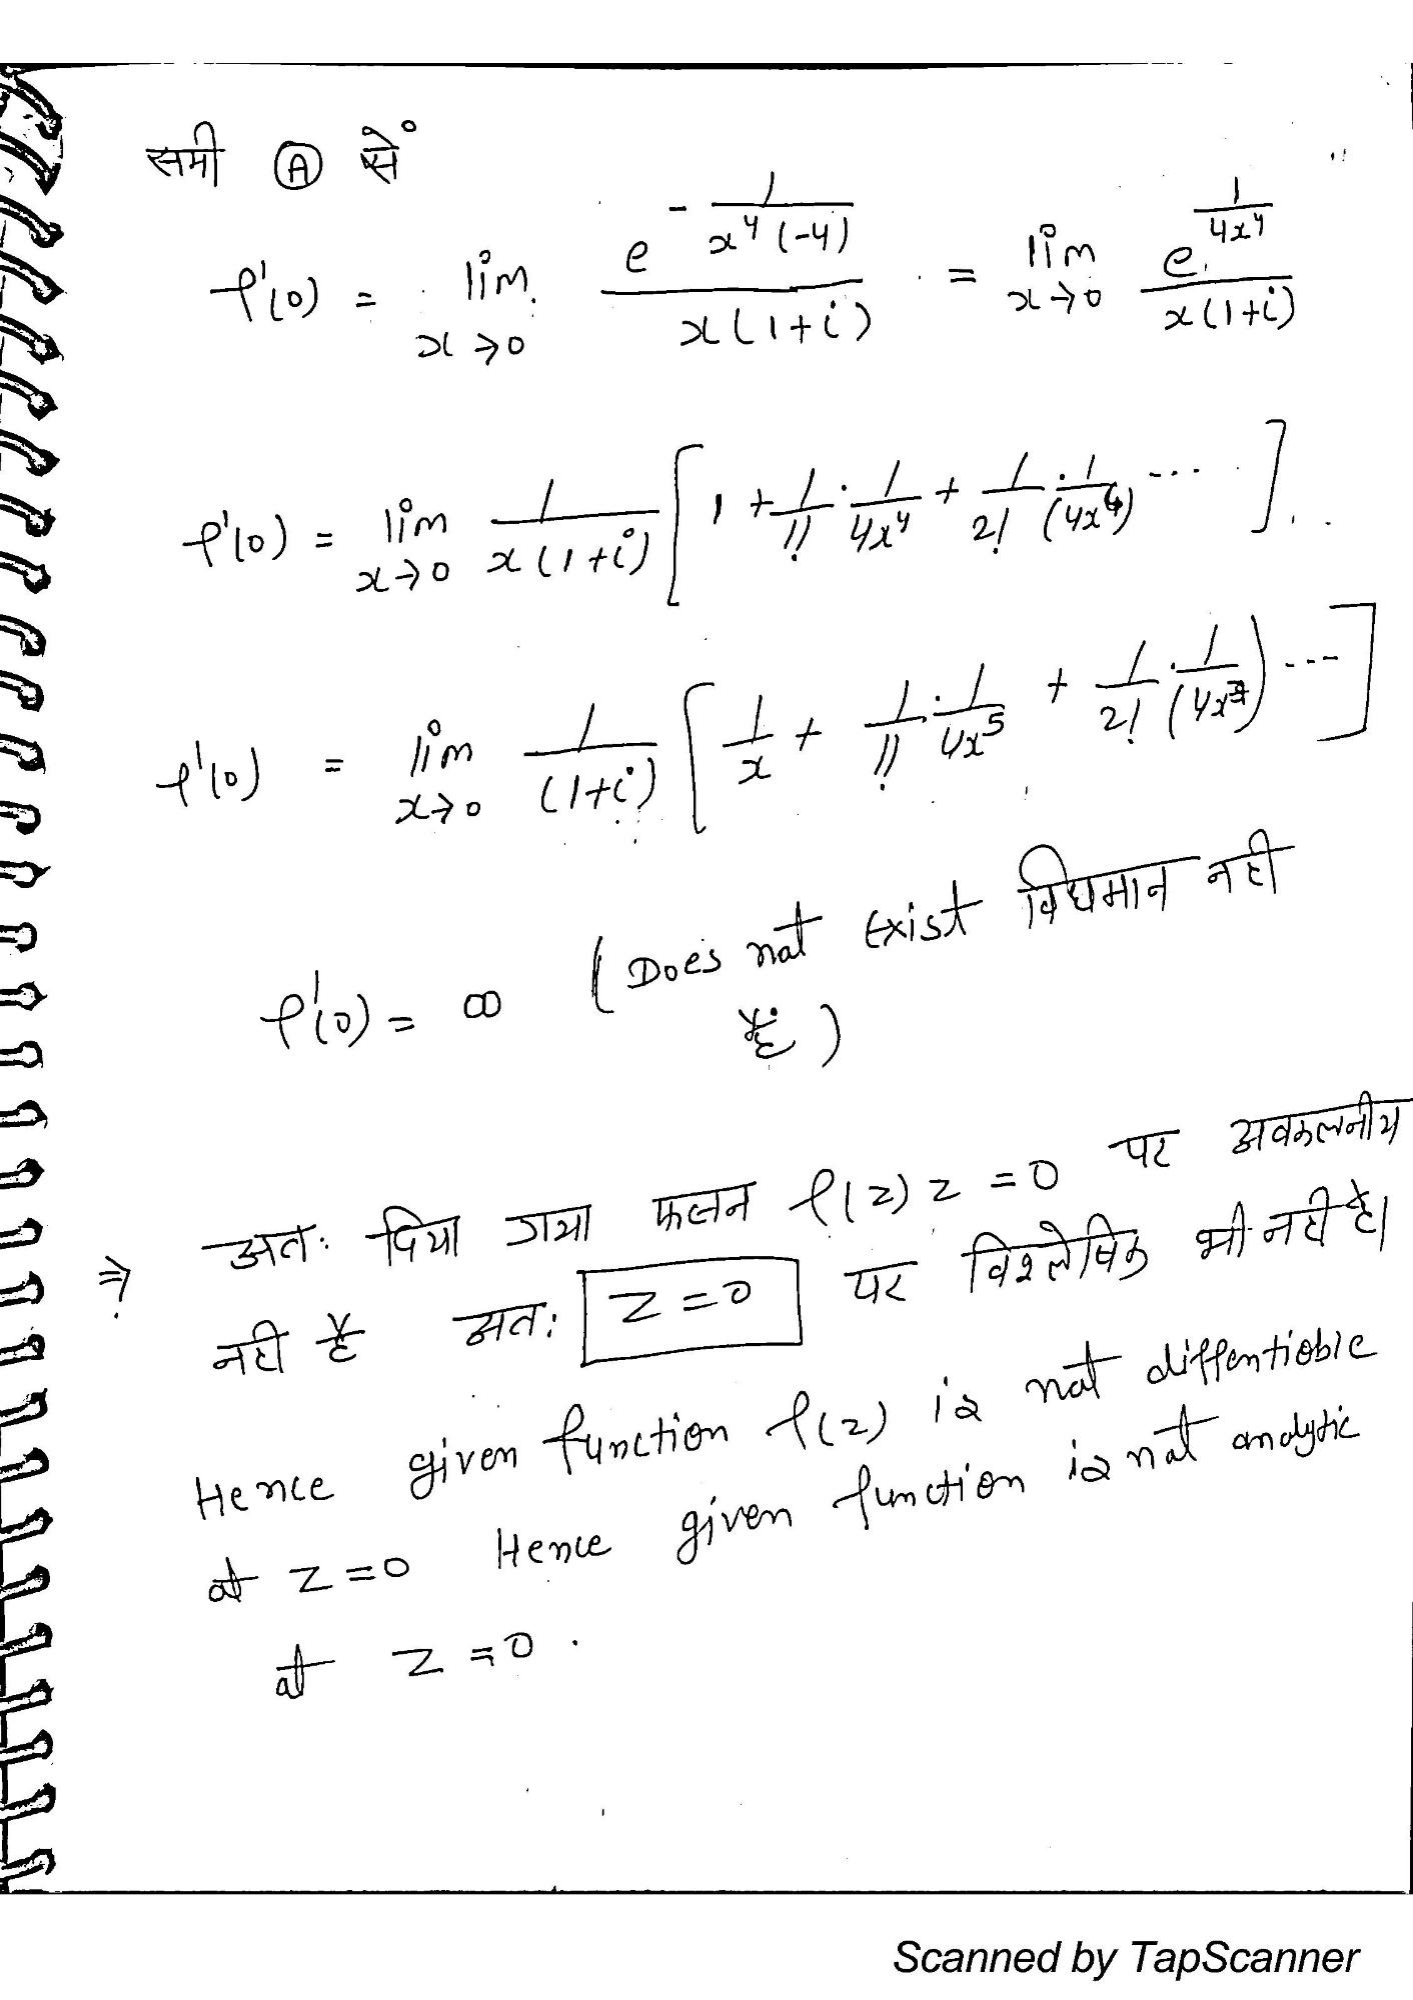 समी Ⓐ से
f'(0) = lim x→0 e^(-1/(x⁴(-4))) / x(1+i) = lim x→0 e^(1/4x⁴) / x(1+i)
f'(0) = lim x→0 1/x(1+i) [1 + 1/1! · 1/4x⁴ + 1/2! · 1/(4x⁴) ---- ]
f'(0) = lim x→0 1/(1+i) [1/x + 1/1! · 1/4x⁵ + 1/2! · ---- ]
f'(0) = ∞ (Does not Exist विघमान नही
है)
⇒ अतः दिया गया फलन f(z) z = 0 पर अवकलनीय
नही है अतः z = 0 पर विश्लेषिक भी नही है।
Hence given function f(z) is not diffentioble
at z = 0 Hence given function is not analytic
at z = 0 .
Scanned by TapScanner